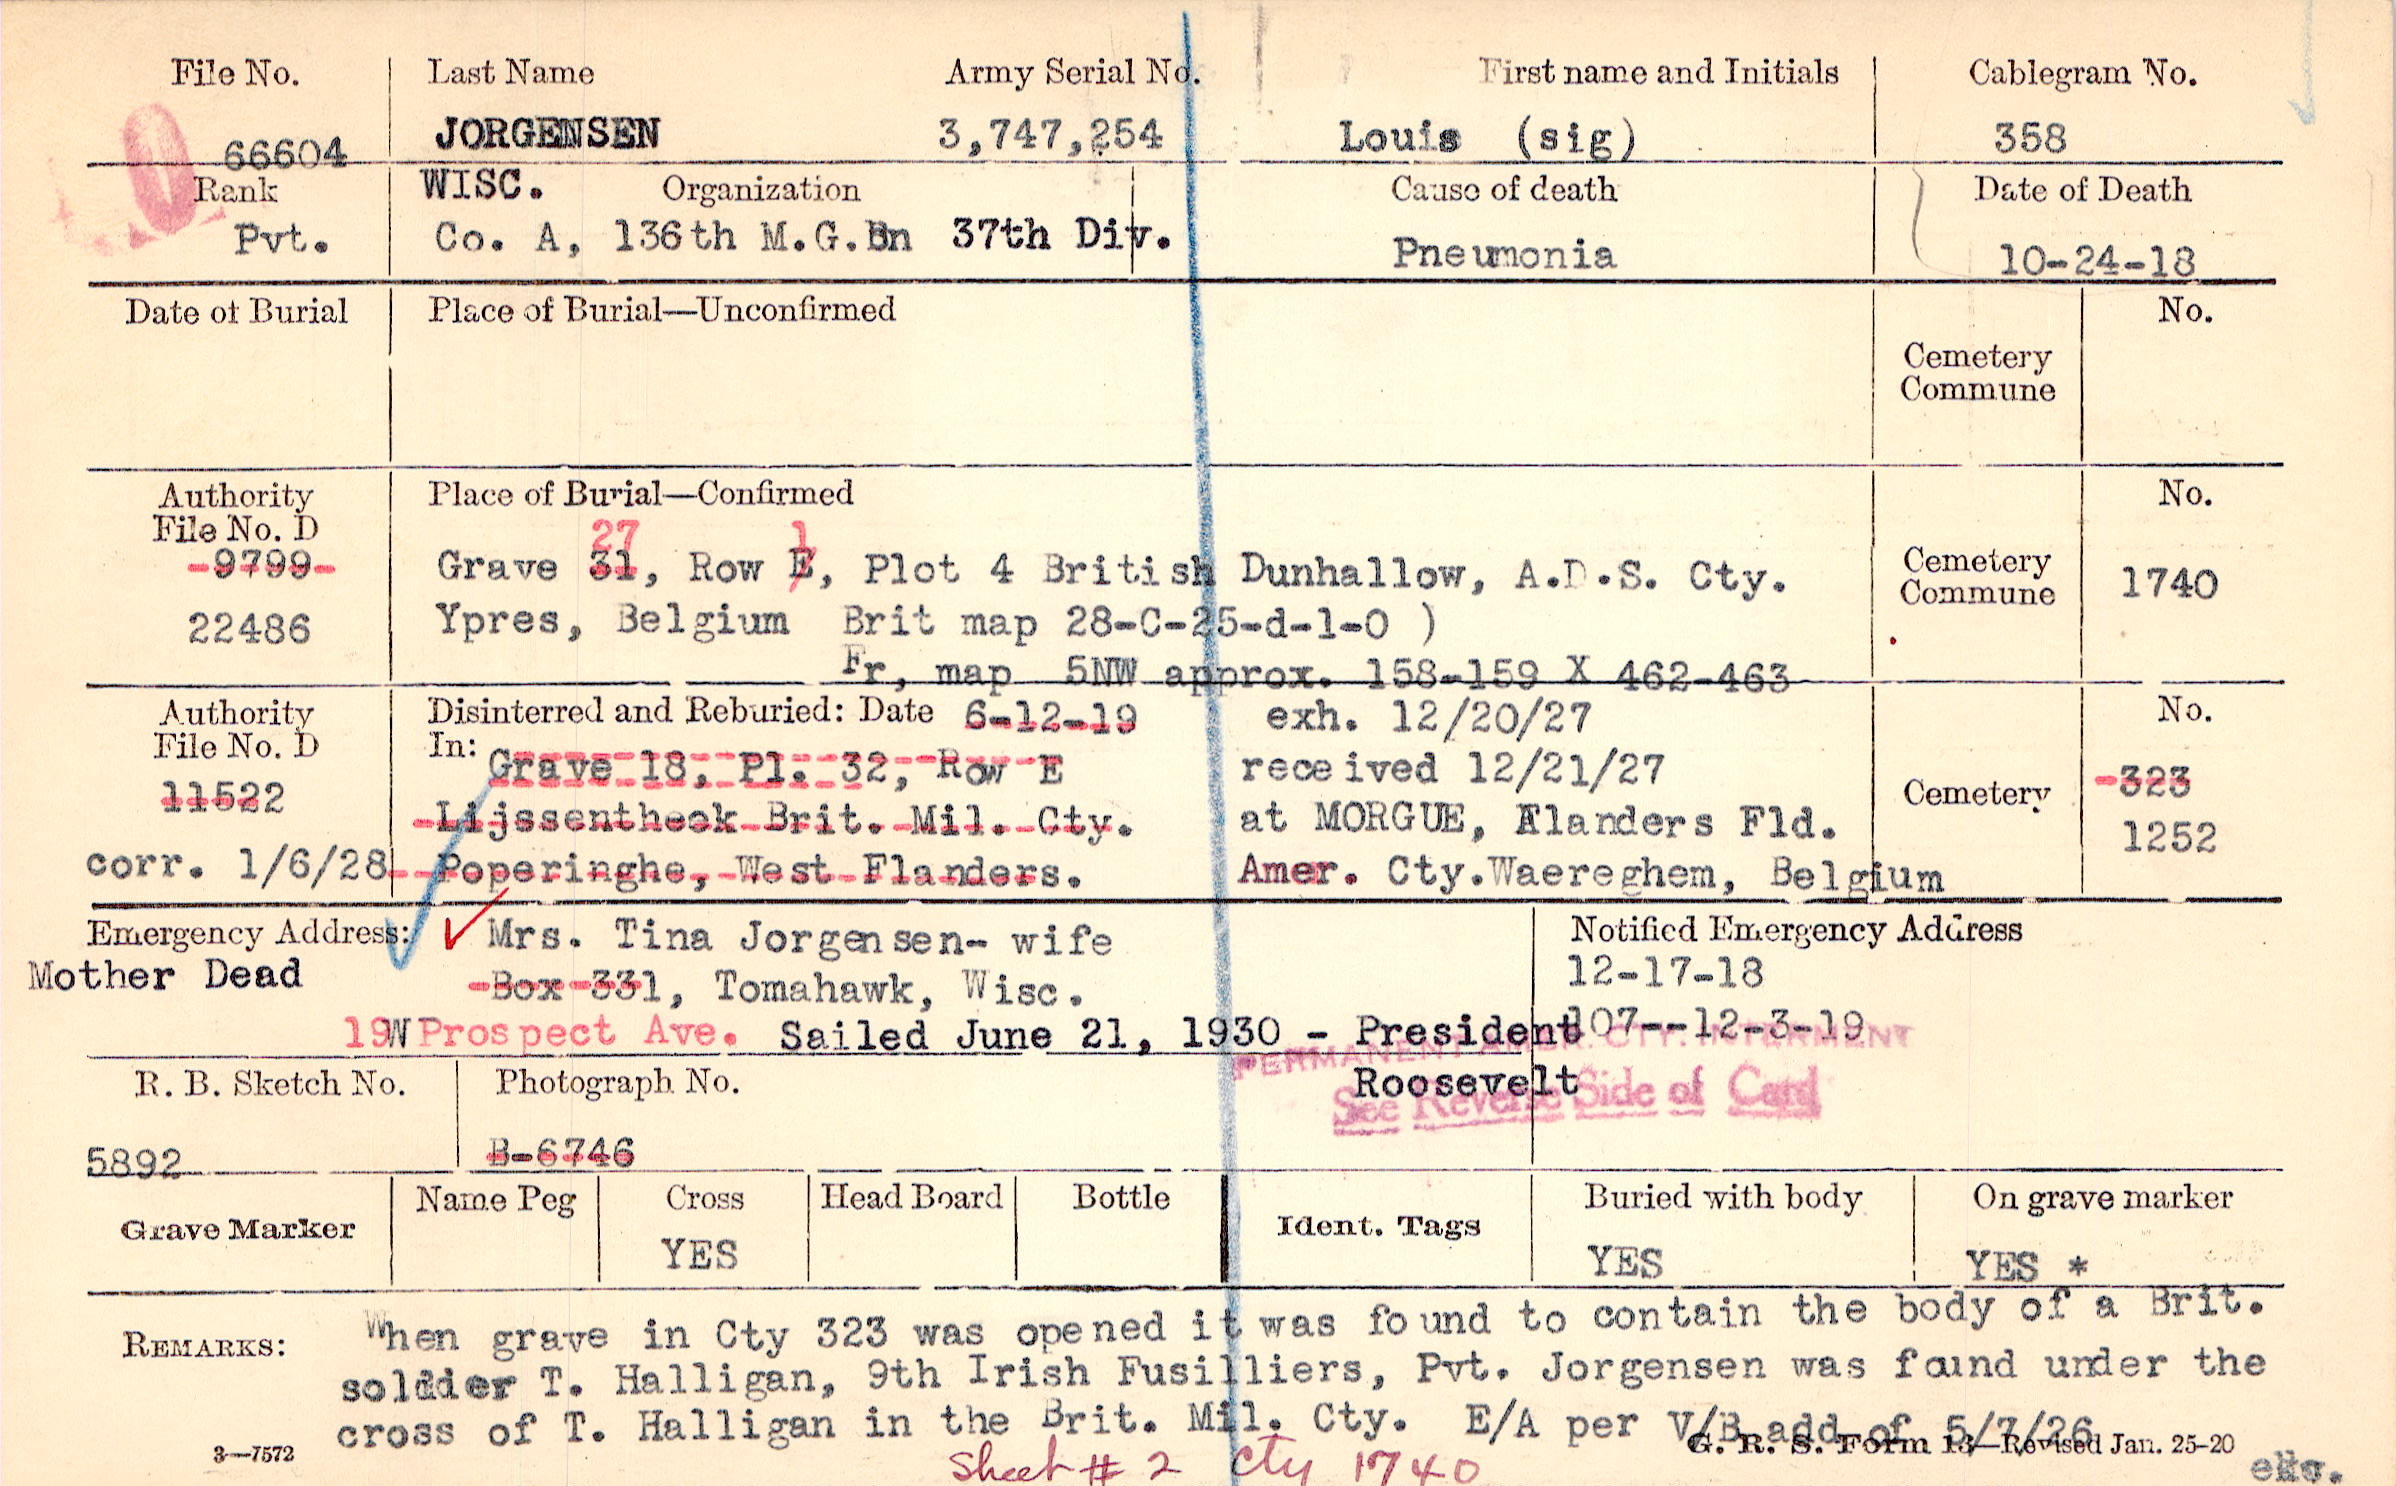 File No. Last Name Army Serial No. First name and Initials Cablegram No.
66604 JORGENSEN 3,747,254 Louis (sig) 358
Rank WISC. Organization Cause of death Date of Death
Pvt. Co. A, 136th M.G.Bn 37th Div. Pneumonia 10-24-18
Date of Burial Place of Burial—Unconfirmed No.
Cemetery
Commune
Authority Place of Burial—Confirmed No.
File No. D 27 1
-9799- Grave 31, Row E, Plot 4 British Dunhallow, A.D.S. Cty. Cemetery
Commune 1740
22486 Ypres, Belgium Brit map 28-C-25-d-1-0 )
Fr, map 5NW approx. 158-159 X 462-463
Authority Disinterred and Reburied: Date 6-12-19 exh. 12/20/27 No.
File No. D In: Grave 18, Pl. 32, Row E received 12/21/27 -323
11522 Lijssentheok Brit. Mil. Cty. at MORGUE, Flanders Fld. Cemetery 1252
corr. 1/6/28 Poperinghe, West Flanders. Amer. Cty.Waereghem, Belgium
Emergency Address: Mrs. Tina Jorgensen- wife Notified Emergency Address
Mother Dead -Box 331, Tomahawk, Wisc. 12-17-18
19W Prospect Ave. Sailed June 21, 1930 - President 107--12-3-19
PERMANENT AMER. CTY. INTERMENT
R. B. Sketch No. Photograph No. Roosevelt
See Reverse Side of Card
5892 B-6746
Grave Marker Name Peg Cross Head Board Bottle Ident. Tags Buried with body On grave marker
YES YES YES *
REMARKS: When grave in Cty 323 was opened it was found to contain the body of a Brit.
soldder T. Halligan, 9th Irish Fusilliers, Pvt. Jorgensen was found under the
cross of T. Halligan in the Brit. Mil. Cty. E/A per V/B add of 5/7/26
3—7572 G. R. S. Form 13—Revised Jan. 25-20
Sheet # 2 Cty 1740